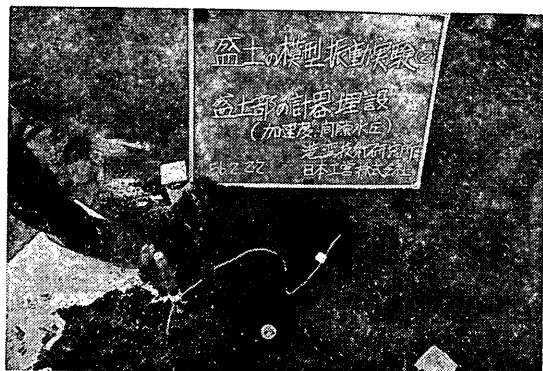 盛土の模型振動実験
盛土部の計器埋設
(加速度.間隙水圧)
港湾技術研究所
日本工営株式会社